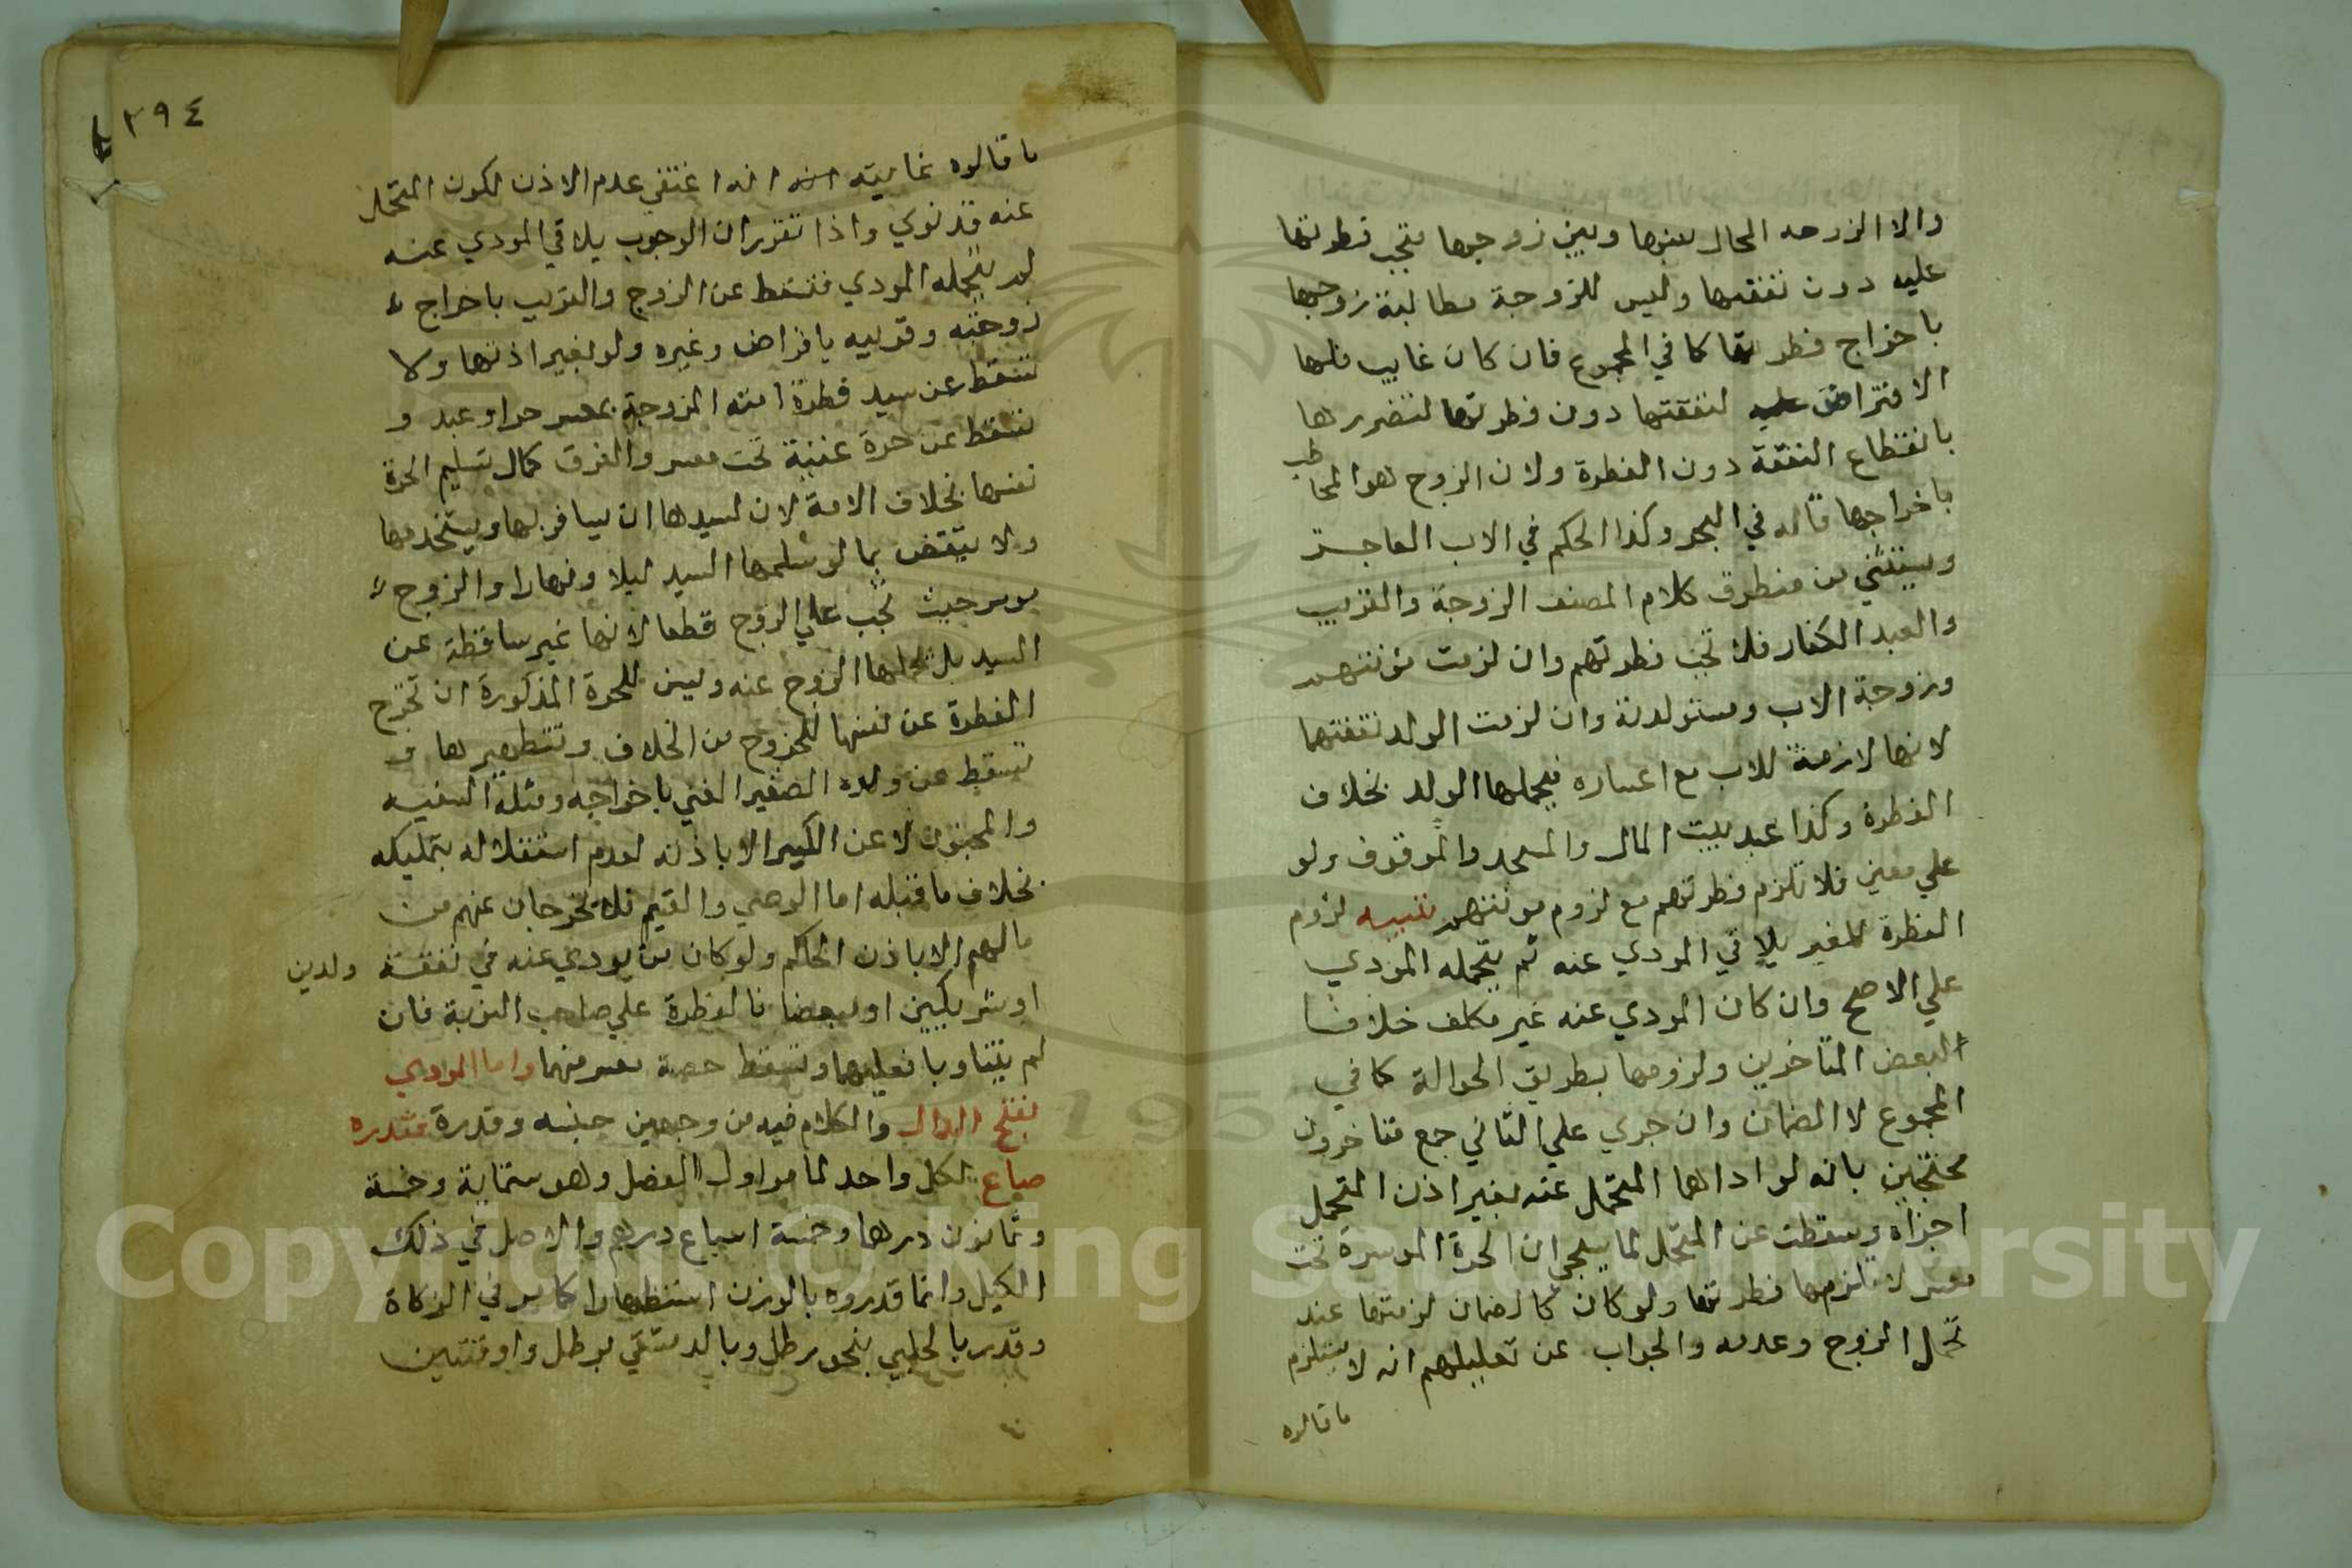 والا الزوجه الحال بينها وبين زوجها فتجب فطرتها
عليه دون نفقتها وليس للزوجة مطالبة زوجها
باخراج فطرتها كما في المجموع فان كان غايب فلها
الاقتراض عليه لنفقتها دون فطرتها لتضررها
بانقطاع النفقة دون الفطرة ولان الزوج هو المخاطب
باخراجها قاله في البحر وكذا الحكم في الاب العاجز
ويستثني من منطوق كلام المصنف الزوجة والقريب
والعبد الكفار فلا تجب فطرتهم وان لزمت مؤنتهم
وزوجة الاب ومستولدته وان لزمت الولد نفقتهما
لانها لازمة للاب مع اعساره فيحملها الولد بخلاف
الفطرة وكذا عبد بيت المال والمسجد والموقوف ولو
علي معين فلا تلزم فطرتهم مع لزوم مونتهم تنبيه لزوم
الفطرة للغير يلاقي المودي عنه ثم يتحمله المودي
علي الاصح وان كان المودي عنه غير مكلف خلافا
لبعض المتاخرين ولزومها بطريق الحوالة كما في
المجموع لا الضمان وان جري علي الثاني جمع متاخرون
محتجين بانه لو اداها المتحمل عنه بغير اذن المتحمل
اجزاه وسقطت عن المتحمل لما سيجي ان الحرة الموسرة تحت
معسر لا تلزمها فطرتها ولو كان كالضمان لزمتها عند
تحمل الزوج وعدمه والجواب عن تعليلهم انه لا يستلزم
ما قالوه
٢٩٤
ما قالوه غايته انه اغتفي عدم الاذن لكون المتحمل
عنه قد نوي واذا تقرر ان الوجوب يلاقي المودي عنه
ثم يتحمله المودي فتسقط عن الزوج والقريب باخراج
زوجته وقريبه باقتراض وغيره ولو بغير اذنهما ولا
تسقط عن سيد فطرة امته المزوجة بمعسر حر او عبد و
تسقط عن حرة غنية تحت معسر والفرق كمال تسليم الحرة
نفسها بخلاف الامة لان لسيدها ان يسافر بها ويستخدمها
ولا ينتقض بما لو سلمها السيد ليلا ونهارا والزوج
موسر حيث تجب علي الزوج قطعا لانها غير ساقطة عن
السيد بل تحملها الزوج عنه وليس للحرة المذكورة ان تخرج
الفطرة عن نفسها للخروج من الخلاف وتتطهيرها و
تسقط عن ولده الصغير الغني باخراجه ومثله السفيه
والمجنون لا عن الكبير الا باذنه لعدم استقلاله بتمليكه
بخلاف ما قبله اما الوصي والقيم فلا يخرجان عنهم من
مالهم الا باذن الحاكم ولو كان من يودي عنه في نفقة ولدين
او شريكين او مبعضا فالفطرة علي صاحب النوبة فان
لم يتناوبا فعليهما وتسقط حصة معسر منهما واما المودي
بفتح الدال والكلام فيه من وجهين جنسه وقدره فقدره
صاع لكل واحد لما مر اول الفصل وهو ستماية وخمسة
وثمانون درهما وخمسة اسباع درهم والاصل في ذلك
الكيل وانما قدروه بالوزن استظهارا كما مر في الزكاة
وقدر بالحلبي بنحو رطل وبالدمشقي برطل واوقتين
Copyright © King Saud University
195